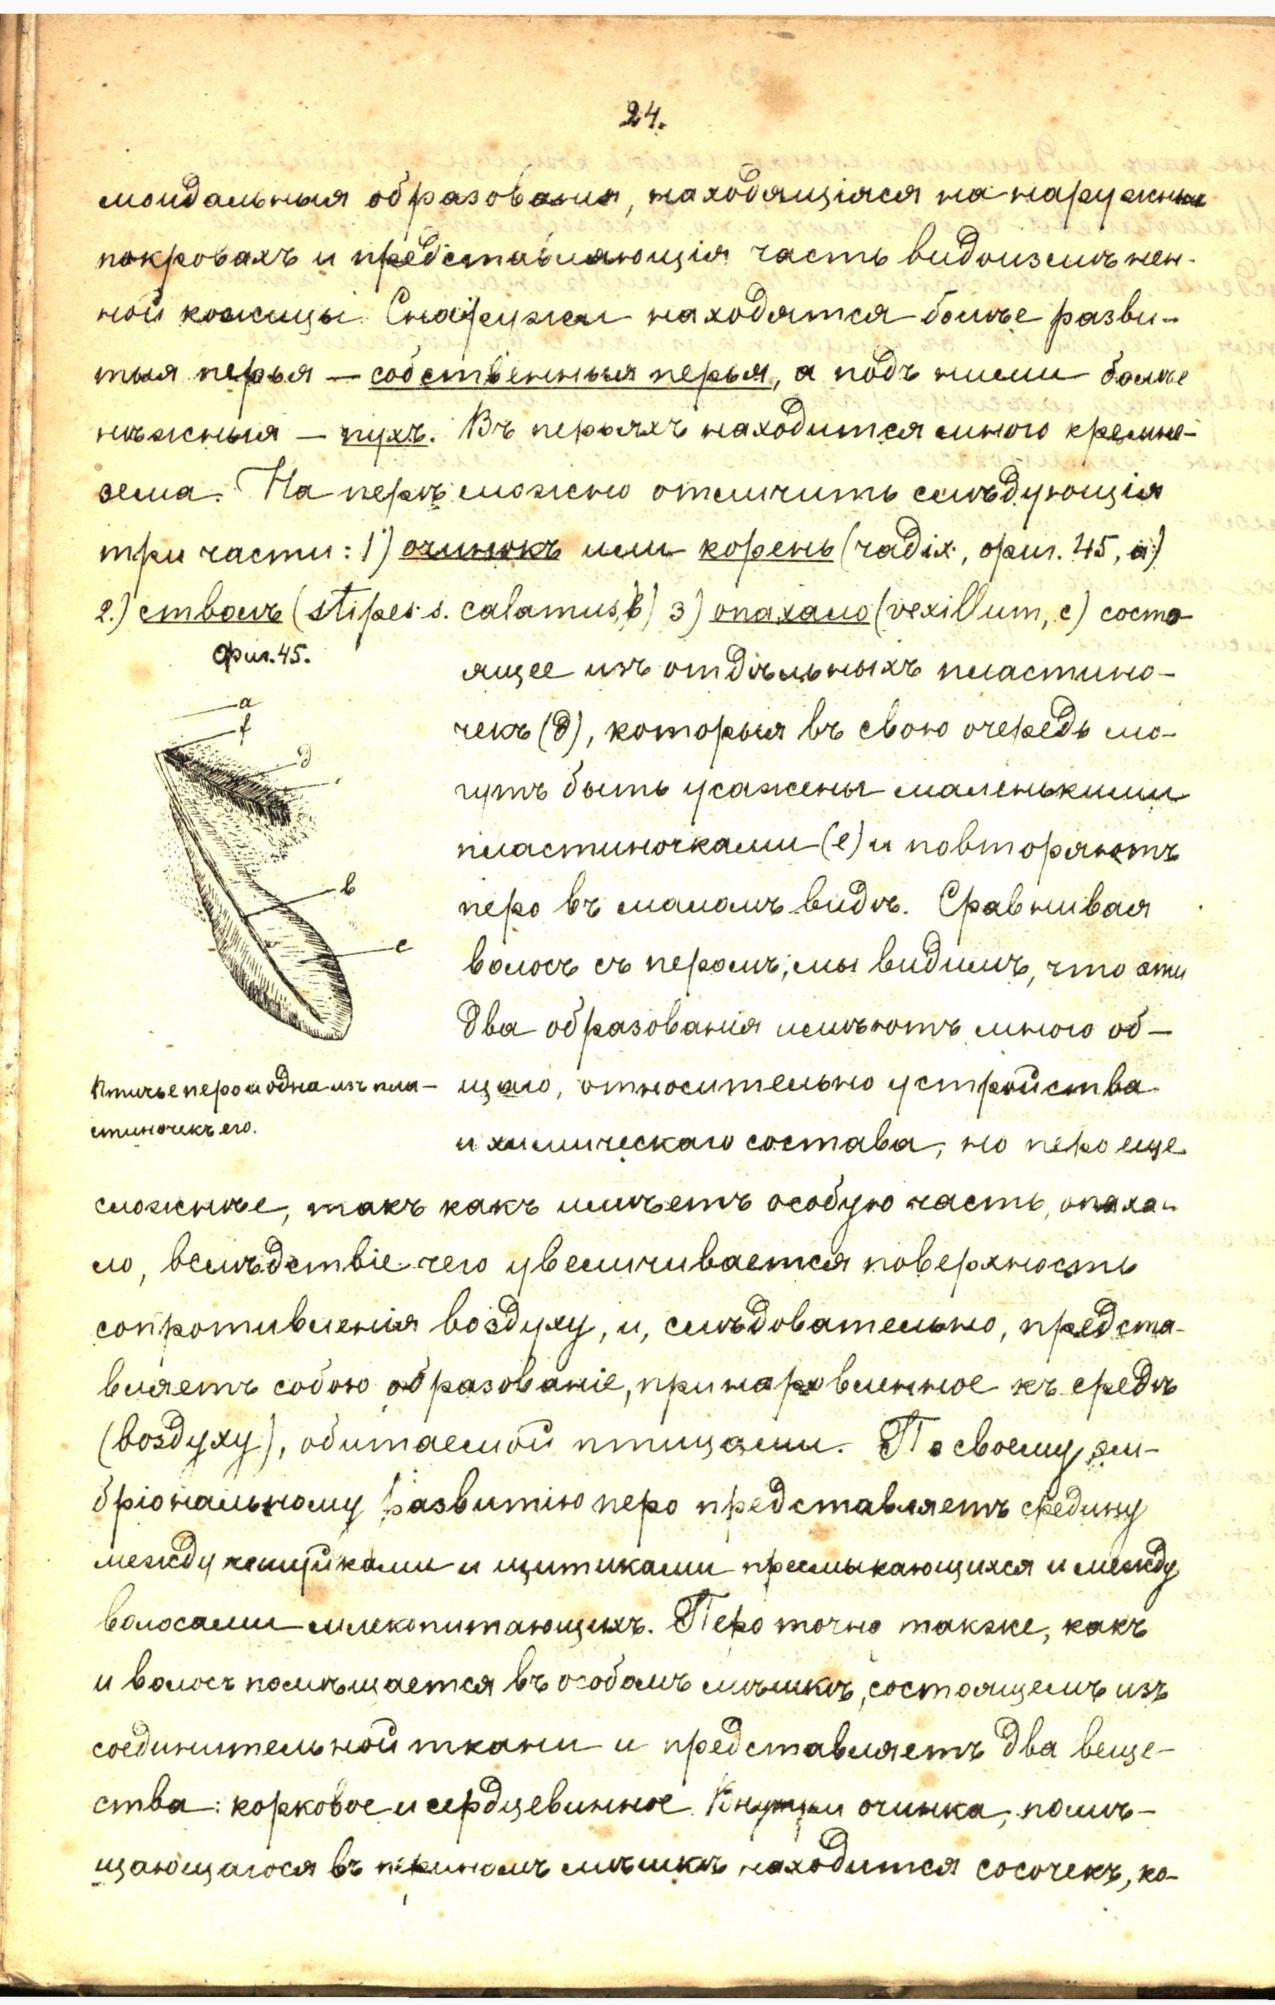 24.
моидальныя образованія, находящіяся на наружных
покровахъ и представляющія часть видоизмѣнен-
ной кожицы. Снаружи находятся болѣе разви-
тыя перья — собственныя перья, а подъ ними болѣе
нѣжныя — пухъ. Въ перьяхъ находится много кремне-
зема. На перѣ можно отличить слѣдующія
три части: 1) очинокъ или корень (radix, фиг. 45, a)
2.) стволъ (stipes s. calamus, b) 3) опахало (vexillum, c) состо-
фиг. 45.
a
f
d
b
c
Птичье перо и одна изъ пла-
стиночекъ его.
ящее изъ отдѣльныхъ пластино-
чекъ (d), которыя въ свою очередь мо-
гутъ быть усажены маленькими
пластиночками (e) и повторяютъ
перо въ маломъ видѣ. Сравнивая
волосъ съ перомъ, мы видимъ, что эти
два образованія имѣютъ много об-
щаго, относительно устройства
и химическаго состава, но перо еще
сложнѣе, такъ какъ имѣетъ особую часть, опаха-
ло, вслѣдствіе чего увеличивается поверхность
сопротивленія воздуху, и, слѣдовательно, предста-
вляетъ собою образованіе, принаровленное къ средѣ
(воздуху), обитаемой птицами. По своему эм-
бріональному развитію перо представляетъ средину
между чешуйками и щитиками пресмыкающихся и между
волосами млекопитающихъ. Перо точно также, какъ
и волосъ помѣщается въ особомъ мѣшкѣ, состоящемъ изъ
соединительной ткани и представляетъ два веще-
ства: корковое и сердцевинное. Внутри очинка, помѣ-
щающагося въ перяномъ мѣшкѣ находится сосочекъ, ко-